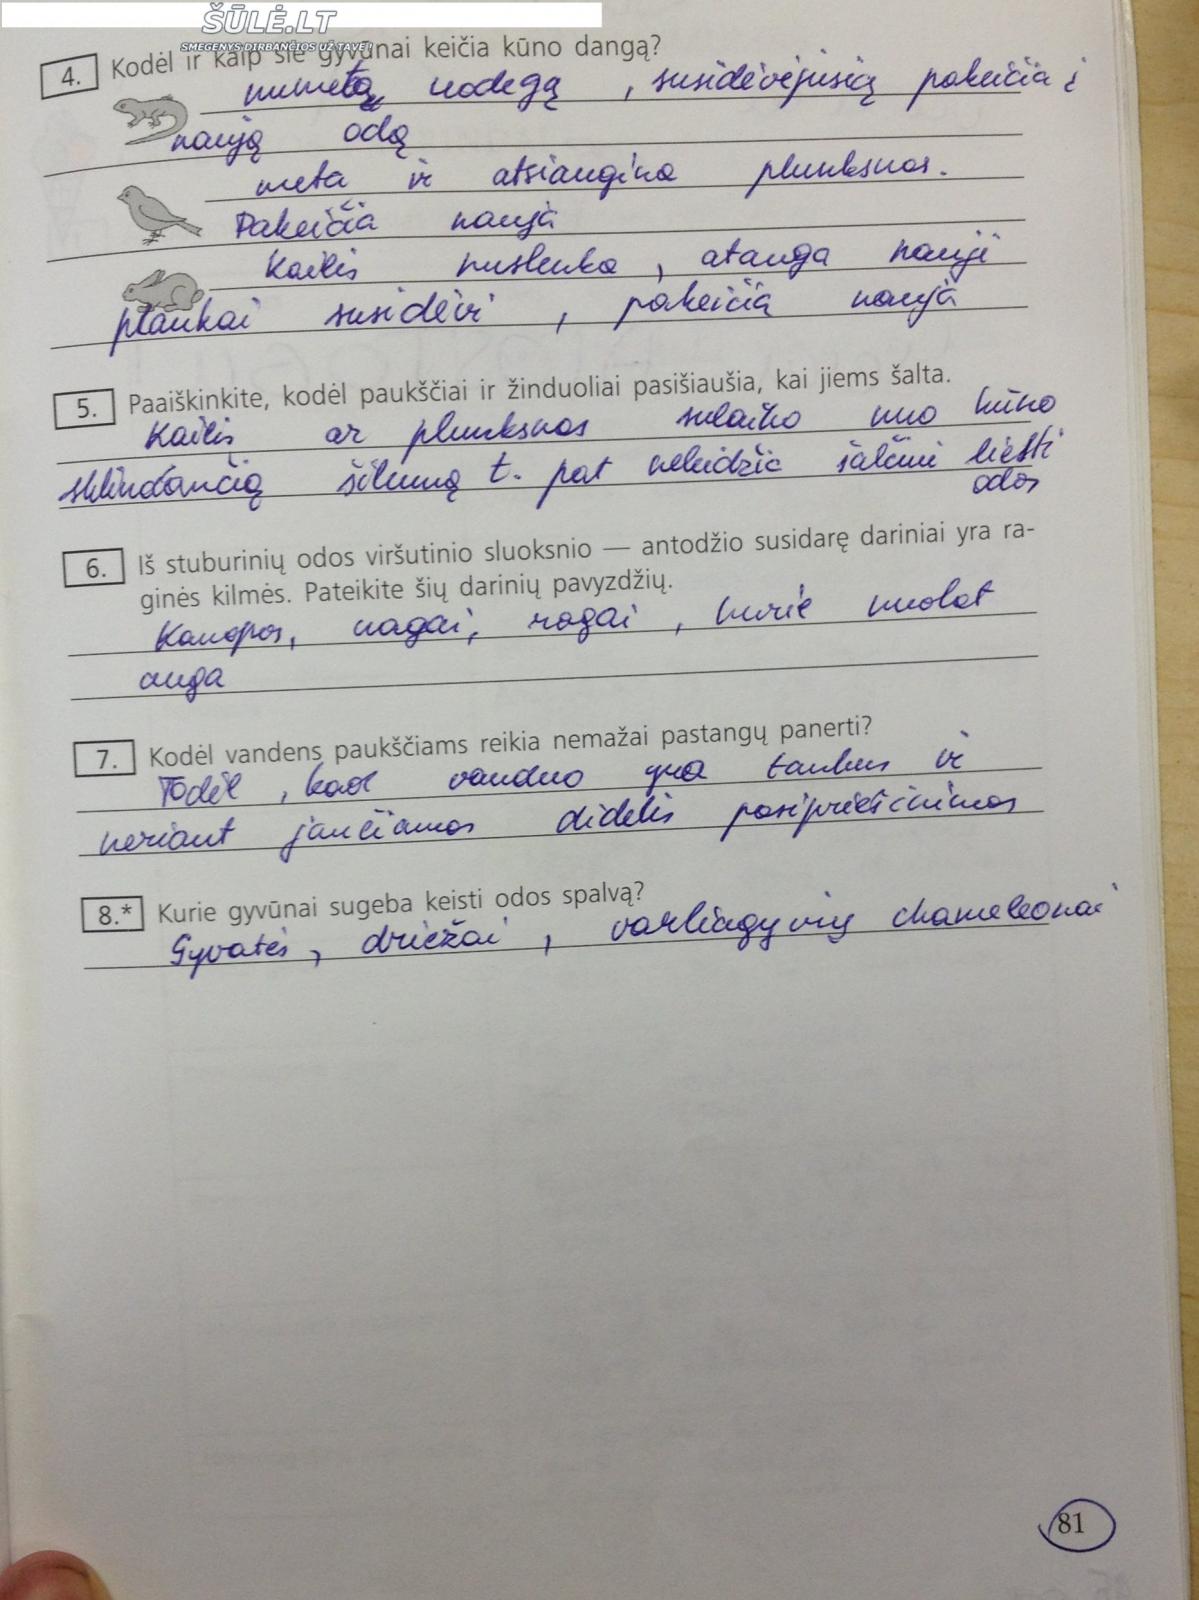 ŠŪLĖ.LT
SMEGENYS DIRBANČIOS UŽ TAVE!
4. Kodėl ir kaip šie gyvūnai keičia kūno dangą?
numeta uodegą , susidėvėjusią pakeičia į
naują odą
meta ir atsiaugina plunksnas.
Pakeičia nauja
Kailis nuslenka , atauga nauji
plaukai susidėvi , pakeičia nauja
5. Paaiškinkite, kodėl paukščiai ir žinduoliai pasišiaušia, kai jiems šalta.
Kailis ar plunksnos sulaiko nuo kūno
sklindančią šilumą t. pat neleidžia šalčiui liesti
odos
6. Iš stuburinių odos viršutinio sluoksnio — antodžio susidarę dariniai yra ra-
ginės kilmės. Pateikite šių darinių pavyzdžių.
Kanopos, nagai, ragai , kurie nuolat
auga
7. Kodėl vandens paukščiams reikia nemažai pastangų panerti?
Todėl , kad vanduo yra tankus ir
neriant jaučiamas didelis pasipriešinimas
8.* Kurie gyvūnai sugeba keisti odos spalvą?
Gyvatės , driežai , varliagyvių chameleonai
81